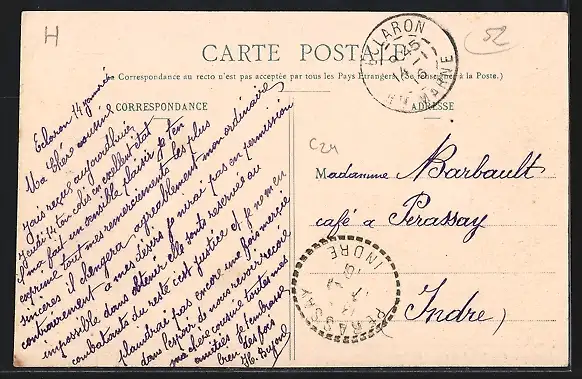 H
52
CARTE POSTALE
Correspondance au recto n'est pas acceptée par tous les Pays Etrangers (Se renseigner à la Poste.)
CORRESPONDANCE
ADRESSE
ECLARON
Hte MARNE
C24
Eclaron 14 janvier
Ma Chère cousine
j'ais reçus aujourdhuie
jeudi 14 ton colis en excellent état
ma fait un sensible plaisir je t'en
exprime tout mes remerciements les plus
sincères il changera agréablement mon ordinaire
contrairement a mes désirs je n'irai pas en permission
impossible dans obtenir elle sonts reservés au
combatants du reste c'est justice et je ne m'en
plaindrai pas encore une fois mercie
dans l'espoir de nous revoir reçoie
ma chère cousine toutes mes
amitiés je t'embrasse
bien des fois
Madamme Barbault
café a Perassay
Indre
PERASSAY
INDRE